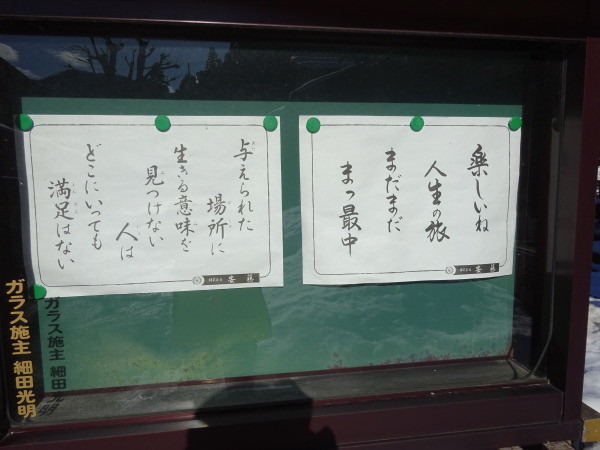 楽しいね
人生の旅
まだまだ
まっ最中
与えられた
場所に
生きる意味を
見つけない
人は
どこにいっても
満足はない
ガラス施主 細田光明